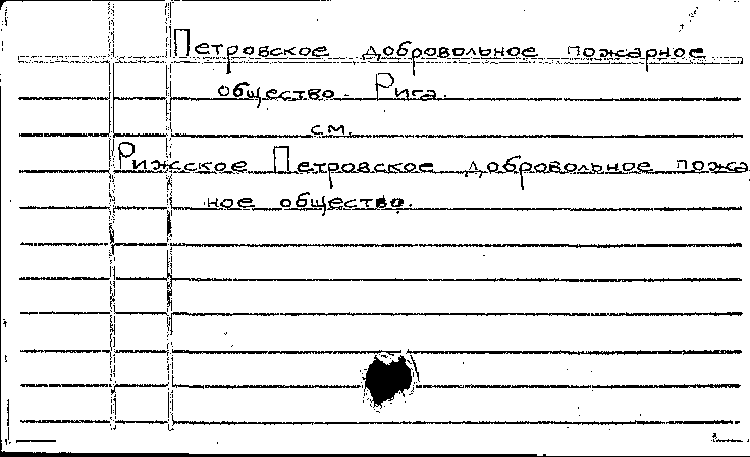 Петровское добровольное пожарное
общество. Рига.
см.
Рижсское Петровское добровольное пожа
ное общество.